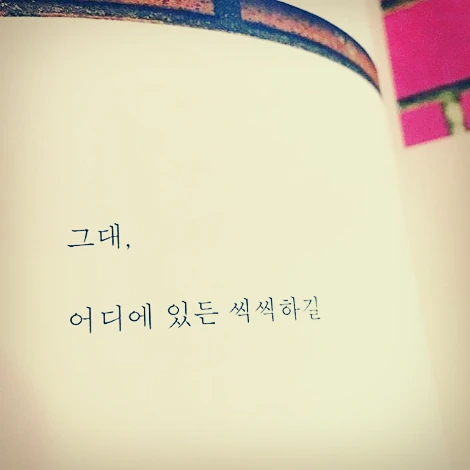 그대,
어디에 있든 씩씩하길